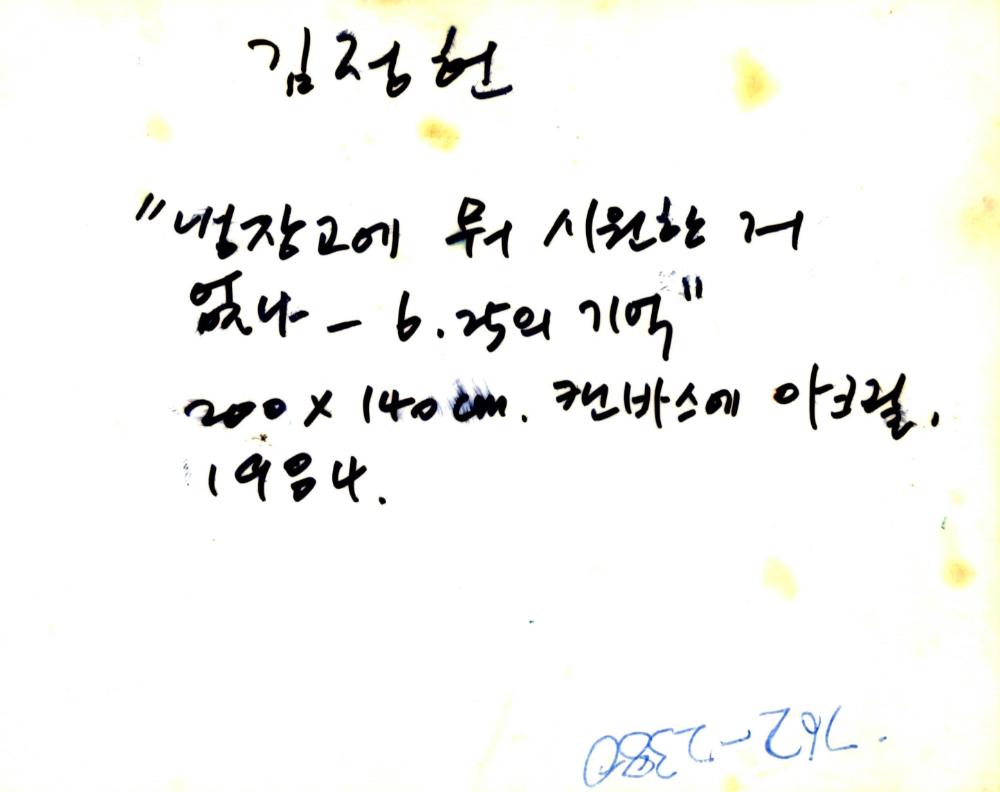 김정헌
"냉장고에 뭐 시원한 거
없나 – 6.25의 기억"
200 × 140 cm. 캔버스에 아크릴.
1984.